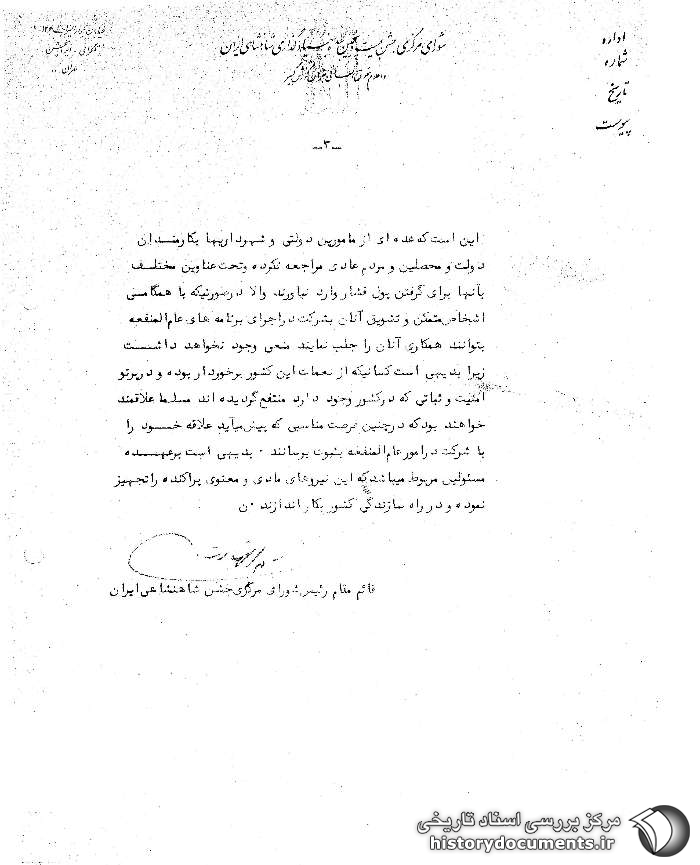 اداره
شماره
تاریخ
پیوست
شورای مرکزی جشن بیست و پنجمین سده بنیادگذاری شاهنشاهی ایران
تهران
ـ۳ـ
این است که عده ای از مامورین دولتی و شهرداریها بکارمندان
دولت و محصلین و مردم عادی مراجعه نکرده و تحت عناوین مختلف
بآنها برای گرفتن پول فشار وارد نیاورند والا درصورتیکه با همگامی
اشخاص متمکن و تشویق آنان بشرکت در اجرای برنامه های عام المنفعه
بتوانند همکاری آنان را جلب نمایند منعی وجود نخواهد داشت
زیرا بدیهی است کسانیکه از نعمات این کشور برخوردار بوده و در پرتو
امنیت و ثباتی که درکشور وجود دارد منتفع گردیده اند مسلما علاقمند
خواهند بود که در چنین فرصت مناسبی که پیش میآید علاقه خود را
با شرکت در امور عام المنفعه بثبوت برسانند ۰ بدیهی است برعهده
مسئولین مربوط میباشد که این نیروهای مادی و معنوی پراکنده را تجهیز
نموده و در راه سازندگی کشور بکار اندازند ۰ن
قائم مقام رئیس شورای مرکزی جشن شاهنشاهی ایران
مرکز بررسی اسناد تاریخی
historydocuments.ir